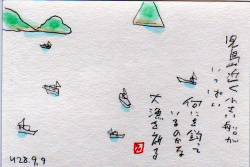 児島近く小さい船が
いっぱい
何を釣って
いるのかな
大漁を祈る
H28.9.9